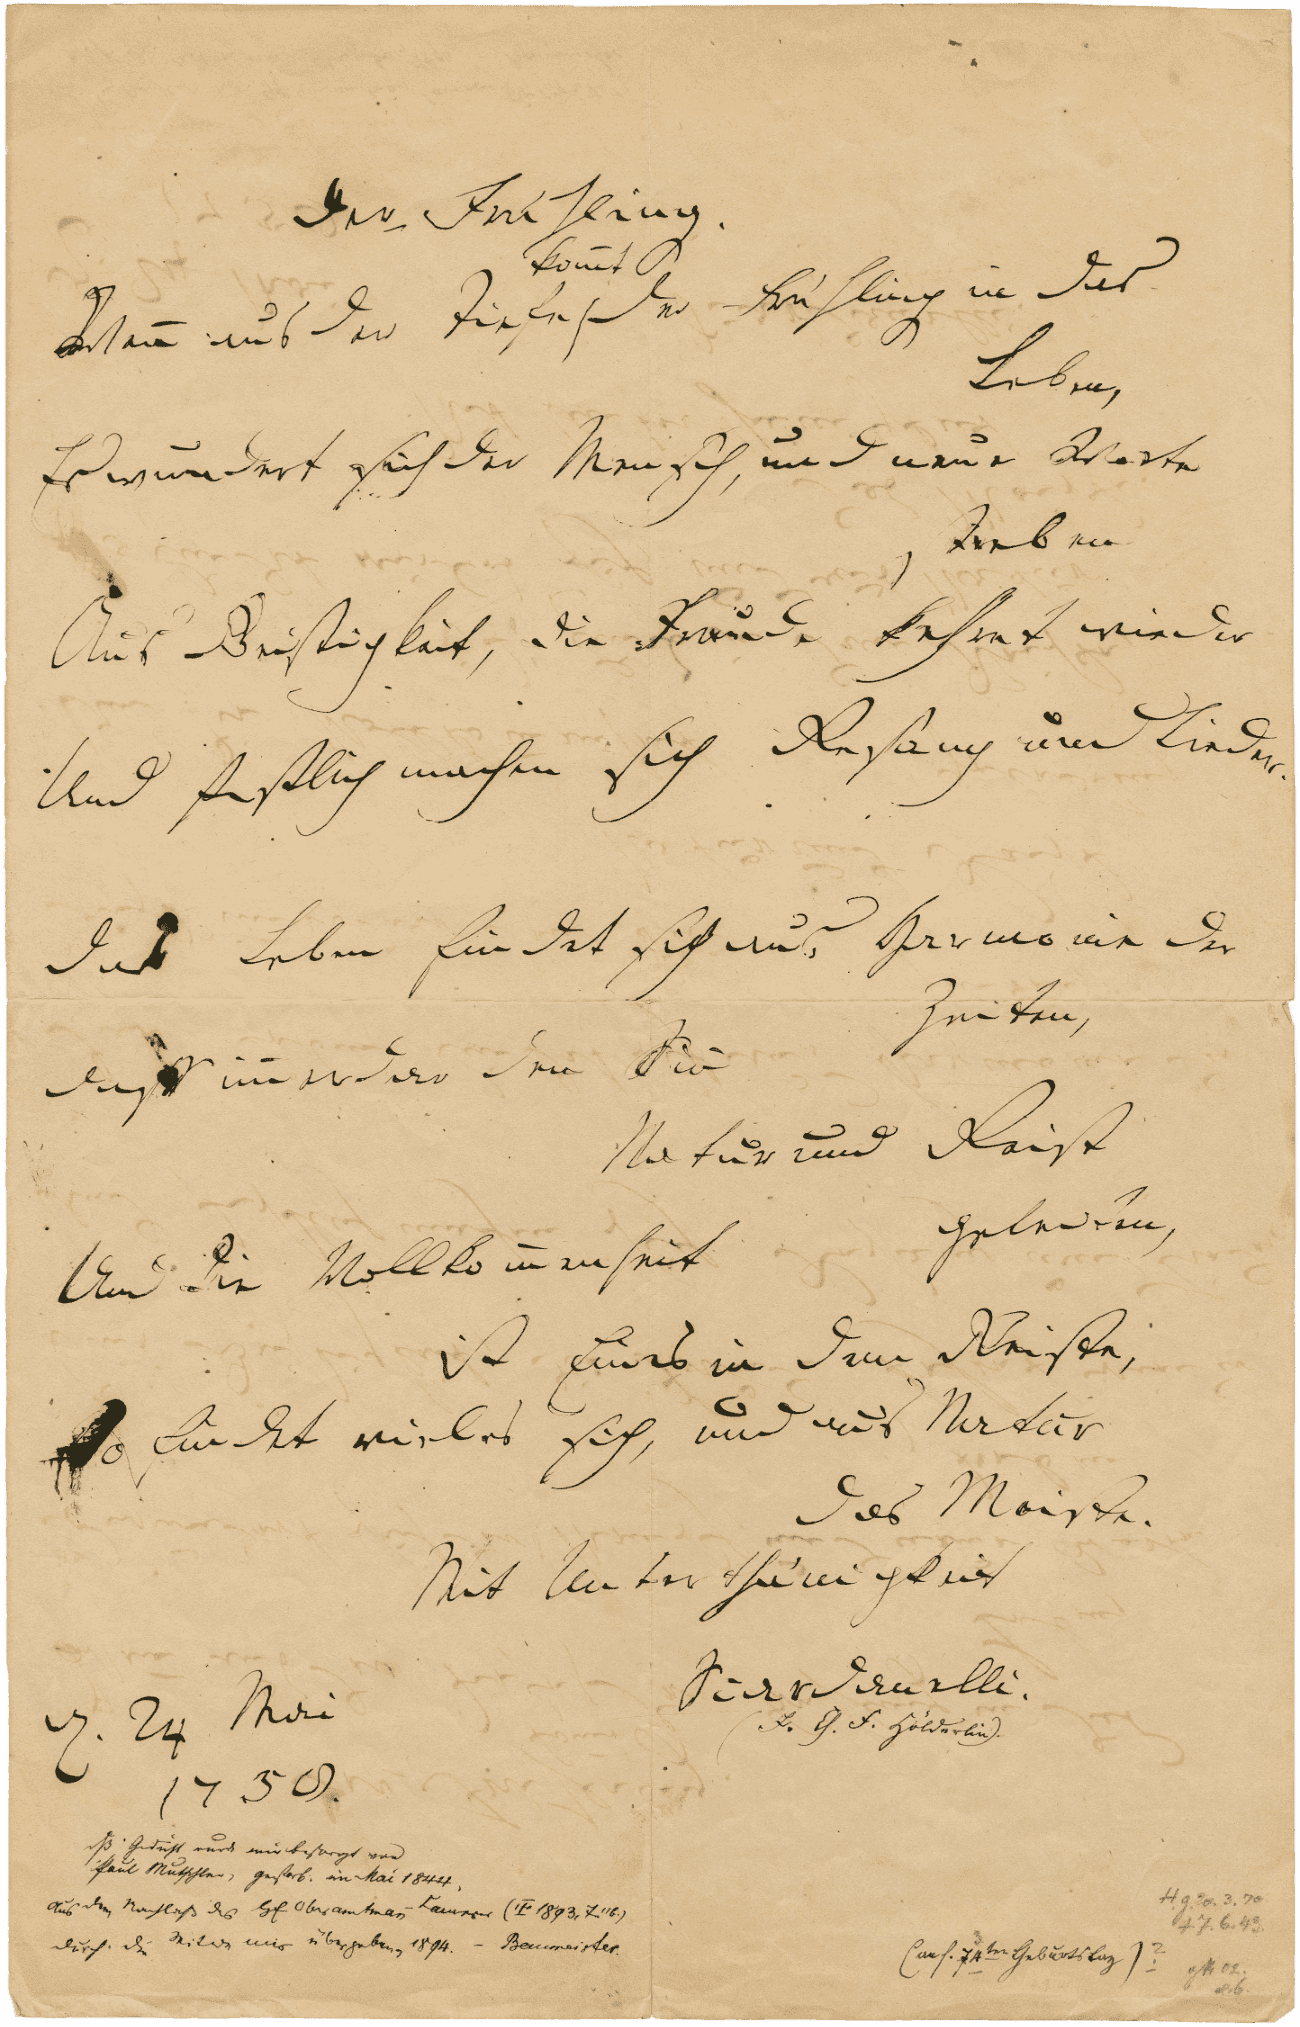 Der Frühling.
kom̄t
Wen̄ aus der Tiefe der Frühling in das
Leben,
Es wundert sich der Mensch, und neue Worte
streben
Aus Geistigkeit, die Freude kehret wieder
Und festlich machen sich Gesang und Lieder.
Das Leben findet sich aus Harmonie der
Zeiten,
Daß im̄erdar den Sin̄
Natur und Geist
geleiten,
Und die Vollkom̄enheit
ist Eines in dem Geiste,
So findet vieles sich, und aus Natur
das Meiste.
Mit Unterthänigkeit
Scardanelli.
(J. C. F. Hölderlin).
d. 24 Mai
1758.
Gedicht wurde mir besorgt von
Paul Mutschler, gestorb. im Mai 1844.
Aus dem Nachlaß des Oberamtman̄ (1893,
durch die Witwe mir übergeben, 1894. – Baumeister.
(auf. 74ten Geburtstag)?
H. g. 20. 3. 70
+ 7. 6. 43.